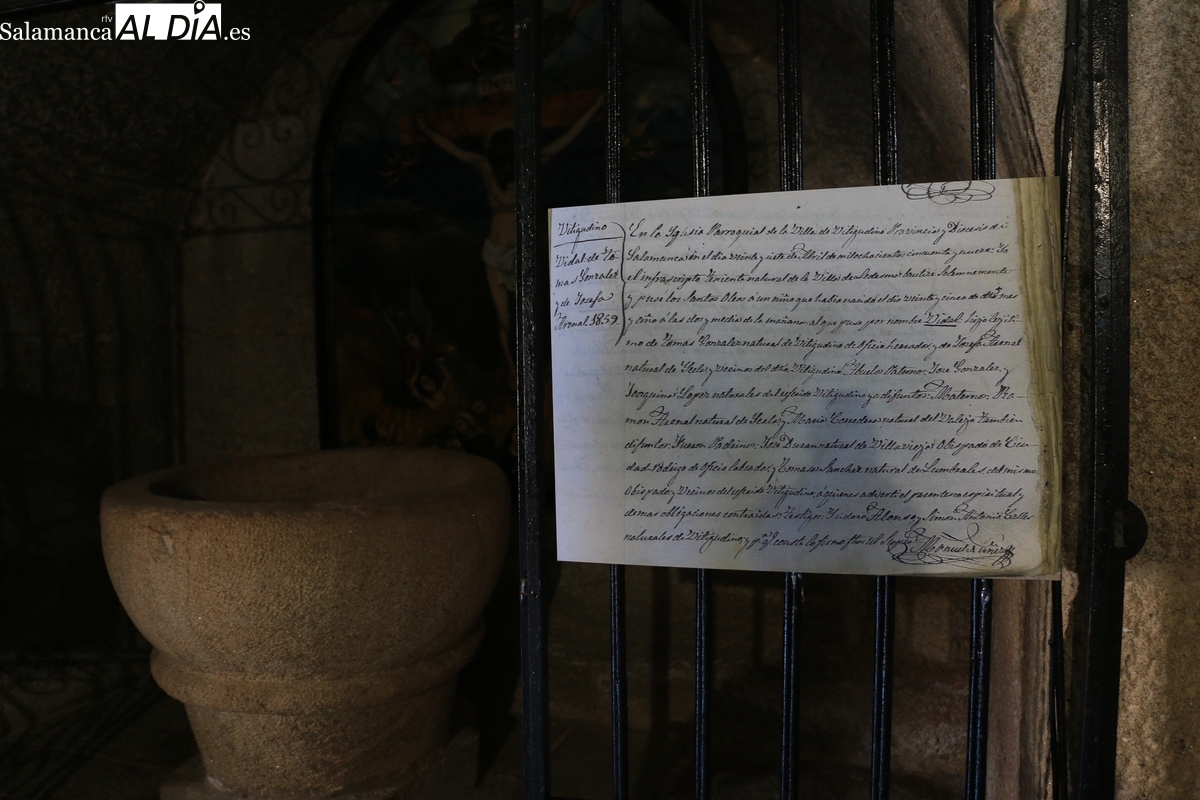 Salamanca rtv AL DÍA.es
Vitigudino
Vidal de To-
mas Gonzalez
y de Josefa
Arenal. 1859
En la Yglesia Parroquial de la Villa de Vitigudino Provincia y Diocesis de
Salamanca en el dia veinte y siete de Abril de mil ochocientos cincuenta y nueve: Yo
el infrascripto Teniente natural de la Villa de Ledesma bautice Solemnemente
y puse los Santos Oleos á un niño que habia nacido el dia veinte y cinco de dho mes
y año á las dos y media de la mañana, al que puse por nombre Vidal: hijo legiti-
mo de Tomas Gonzalez natural de Vitigudino de oficio herrador, y de Josefa Arenal
natural de y vecinos del dho Vitigudino. Abuelos Paternos: Jose Gonzalez, y
Joaquina Lopez naturales del referido Vitigudino ya difuntos: Maternos: Ra-
mon Arenal natural de y Maria Corredera natural del Valejo tambien
difuntos: Fueron Padrinos: Jose Duran natural de Villavieja Obispado de Ciu-
dad-Rodrigo de oficio labrador, y Tomasa Sanchez natural de Lumbrales del mismo
Obispado, y vecinos del referido Vitigudino, á quienes advertí el parentesco espiritual y
demas obligaciones contraidas: Testigos: Ysidoro Alonso, y Simon Antonio Calles
naturales de Vitigudino, y pª qe conste lo firmo fha ut supra. Manuel Nuñez